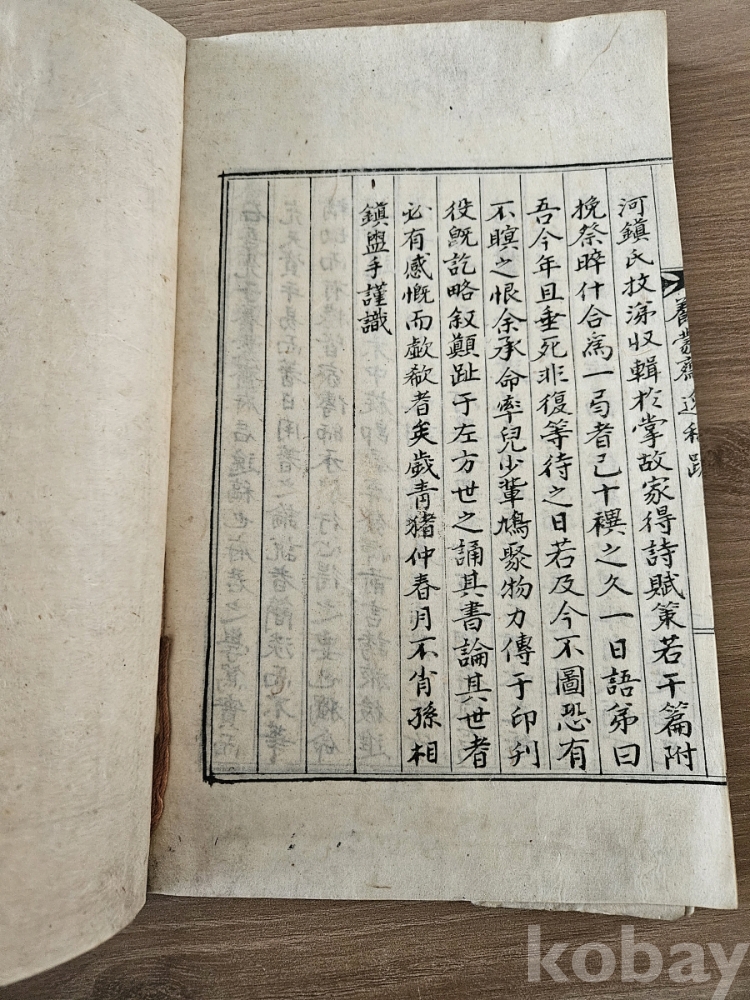 養蒙齋逸稿跋
河鎭氏抆涕収輯於掌故家得詩賦策若干篇附
挽祭晬什合爲一局者已十禩之久一日語弟曰
吾今年且垂死非復等待之日若及今不圖恐有
不暝之恨余承命率兒少輩鳩聚物力傳于印刋
役旣訖略叙顚趾于左方世之誦其書論其世者
必有感慨而歔欷者矣歲靑猪仲春月不肖孫相
鎭盥手謹識
kobay